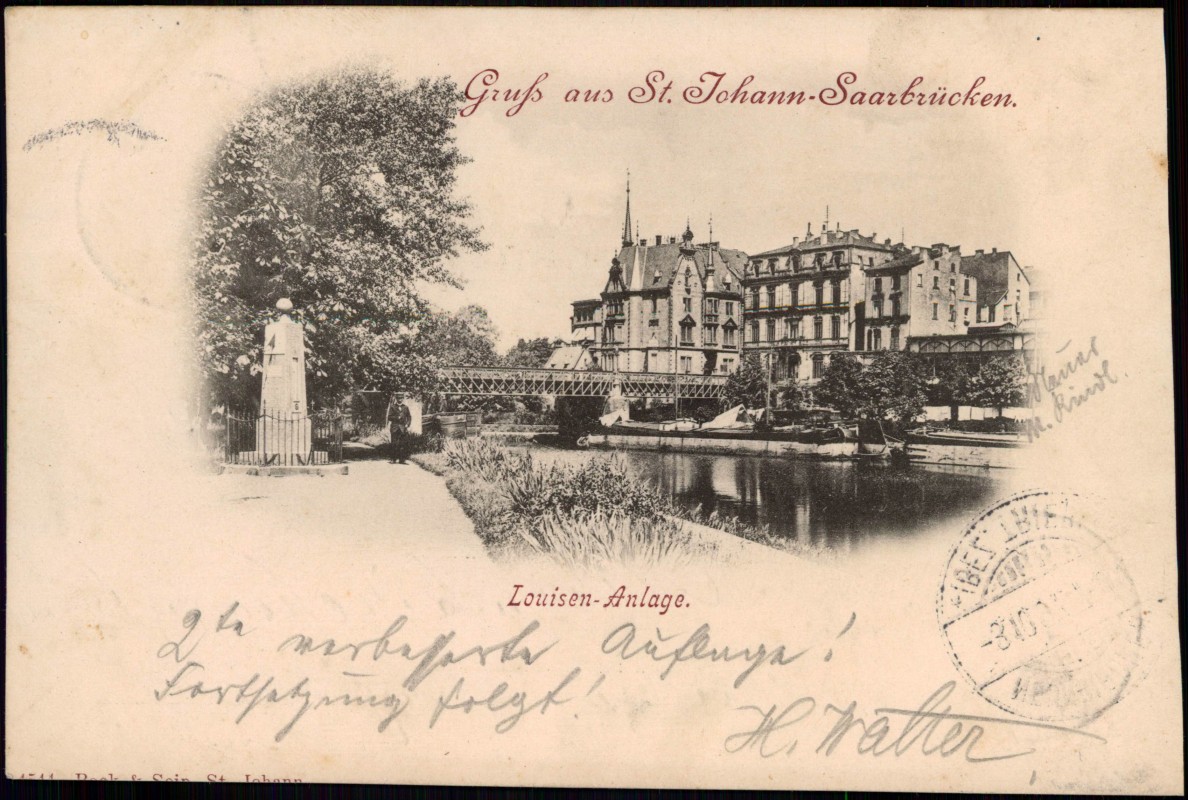 Gruß aus St. Johann-Saarbrücken.
Louisen-Anlage.
2te verbesserte Auflage!
Fortsetzung folgt!
H. Walter
St. Johann